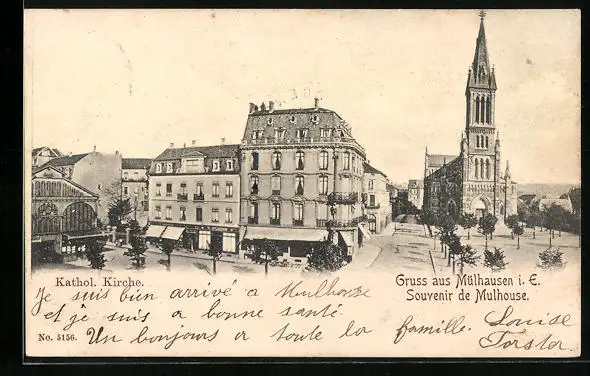 Kathol. Kirche.
Gruss aus Mülhausen i. E.
Souvenir de Mulhouse.
Je suis bien arrivé a Mulhouse
et je suis a bonne santé
Un bonjours a toute la famille. Louise
No. 5156.